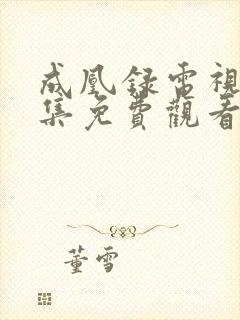 成凰錄電視
集免費觀看
董雪